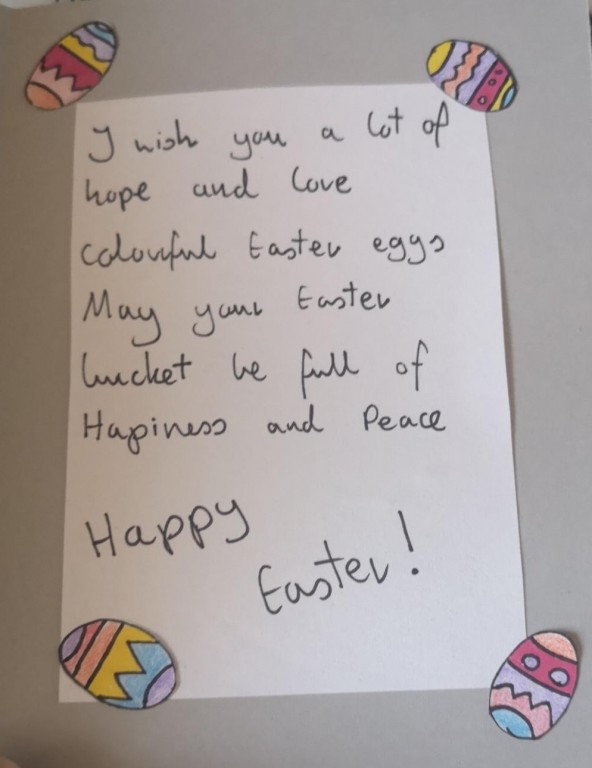 I wish you a lot of
hope and love
colourful Easter eggs
May your Easter
bucket be full of
Hapiness and Peace
Happy
Easter!